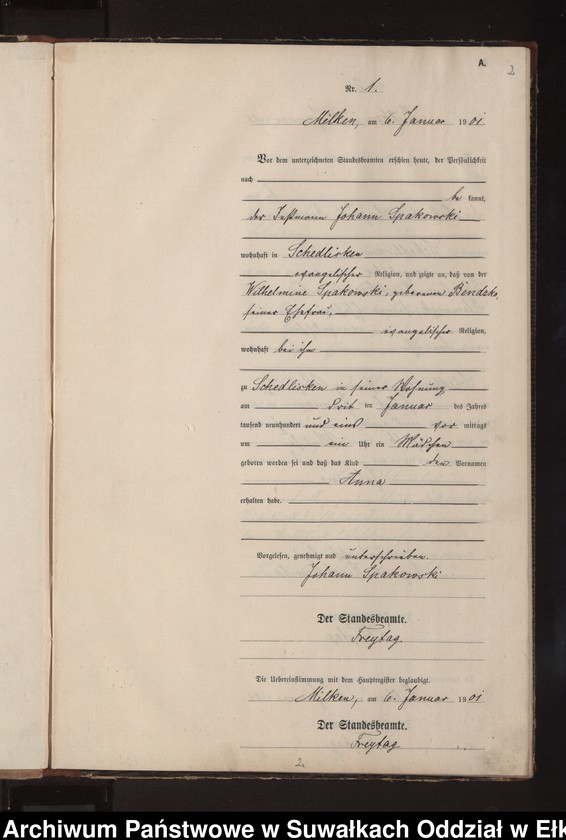 A.
2
Nr. 1.
Milken, am 6. Januar 1901
Vor dem unterzeichneten Standesbeamten erschien heute, der Persönlichkeit
nach
be kannt,
der Instmann Johann Spakowski
wohnhaft in Schedlisken
evangelischer Religion, und zeigte an, daß von der
Wilhelmine Spakowski, geborenen
seiner Ehefrau,
evangelischer Religion,
wohnhaft bei ihm
zu Schedlisken in seiner Wohnung
am ten Januar des Jahres
tausend neunhundert und eins vor mittags
um ein Uhr ein Mädchen
geboren worden sei und daß das Kind den Vornamen
Anna
erhalten habe.
Vorgelesen, genehmigt und unterschrieben.
Johann Spakowski
Der Standesbeamte.
Freytag
Die Uebereinstimmung mit dem Hauptregister beglaubigt.
Milken, am 6. Januar 1901
Der Standesbeamte.
Freytag
2
Archiwum Państwowe w Suwałkach Oddział w Ełk